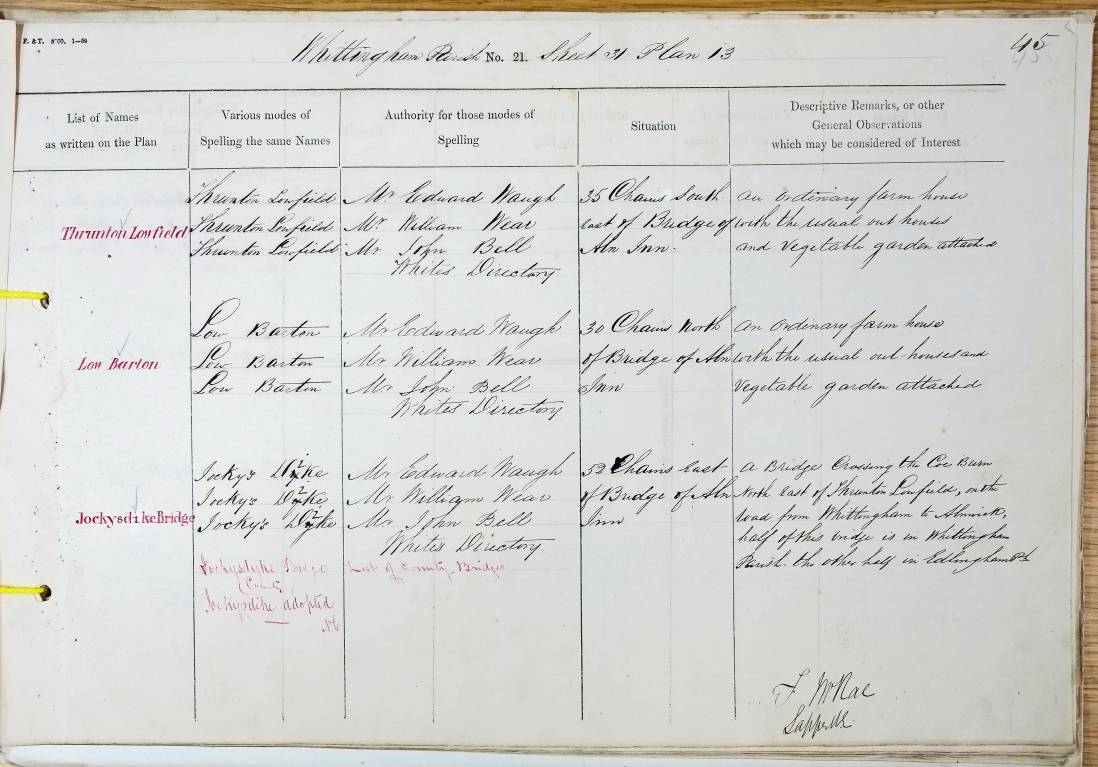 F. & T. 5'00. 1—59
Whittingham Parish No. 21. Sheet 31 Plan 13
45
List of Names
as written on the Plan
Various modes of
Spelling the same Names
Authority for those modes of
Spelling
Situation
Descriptive Remarks, or other
General Observations
which may be considered of Interest
Thrunton Lowfield
Thrunton Lowfield
Thrunton Lowfield
Thrunton Lowfield
Mr Edward Waugh
Mr William Wear
Mr John Bell
Whites Directory
35 Chains South
east of Bridge of
Aln Inn.
an ordinary farm house
with the usual out houses
and vegetable garden attached
Low Barton
Low Barton
Low Barton
Low Barton
Mr Edward Waugh
Mr William Wear
Mr John Bell
Whites Directory
30 Chains North
of Bridge of Aln
Inn
an ordinary farm house
with the usual out-houses and
vegetable garden attached
Jockysdike Bridge
Jocky's Dyke
Jocky's Dyke
Jocky's Dyke
Jockysdyke Bridge
(County
Jockysdike adopted
Mr Edward Waugh
Mr William Wear
Mr John Bell
Whites Directory
List of County Bridges
52 Chains East
of Bridge of Aln
Inn
A Bridge Crossing the Coe Burn
North East of Thrunton Lowfield, on the
road from Whittingham to Alnwick,
half of this bridge is in Whittingham
Parish. the other half in Edlingham Ph
J McRae
Sapper RE